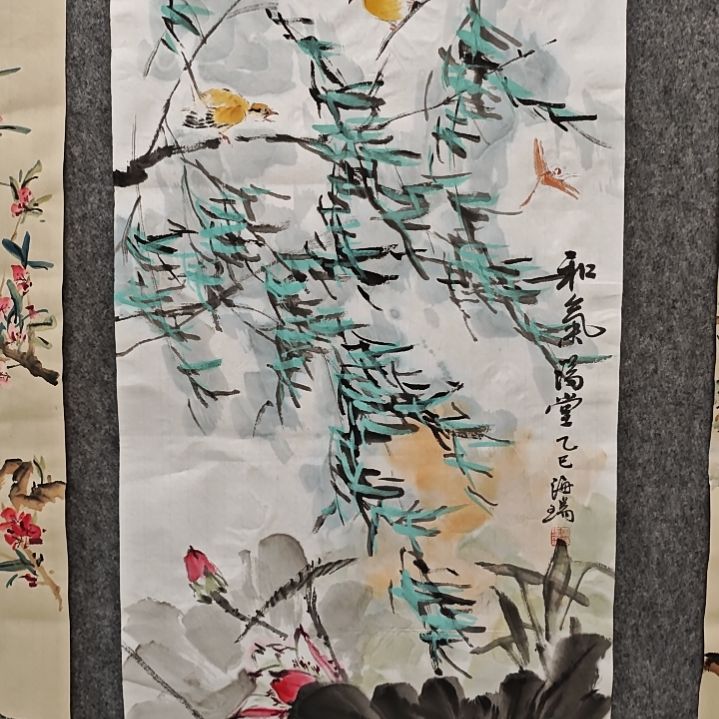 和氣滿堂乙巳海瑞